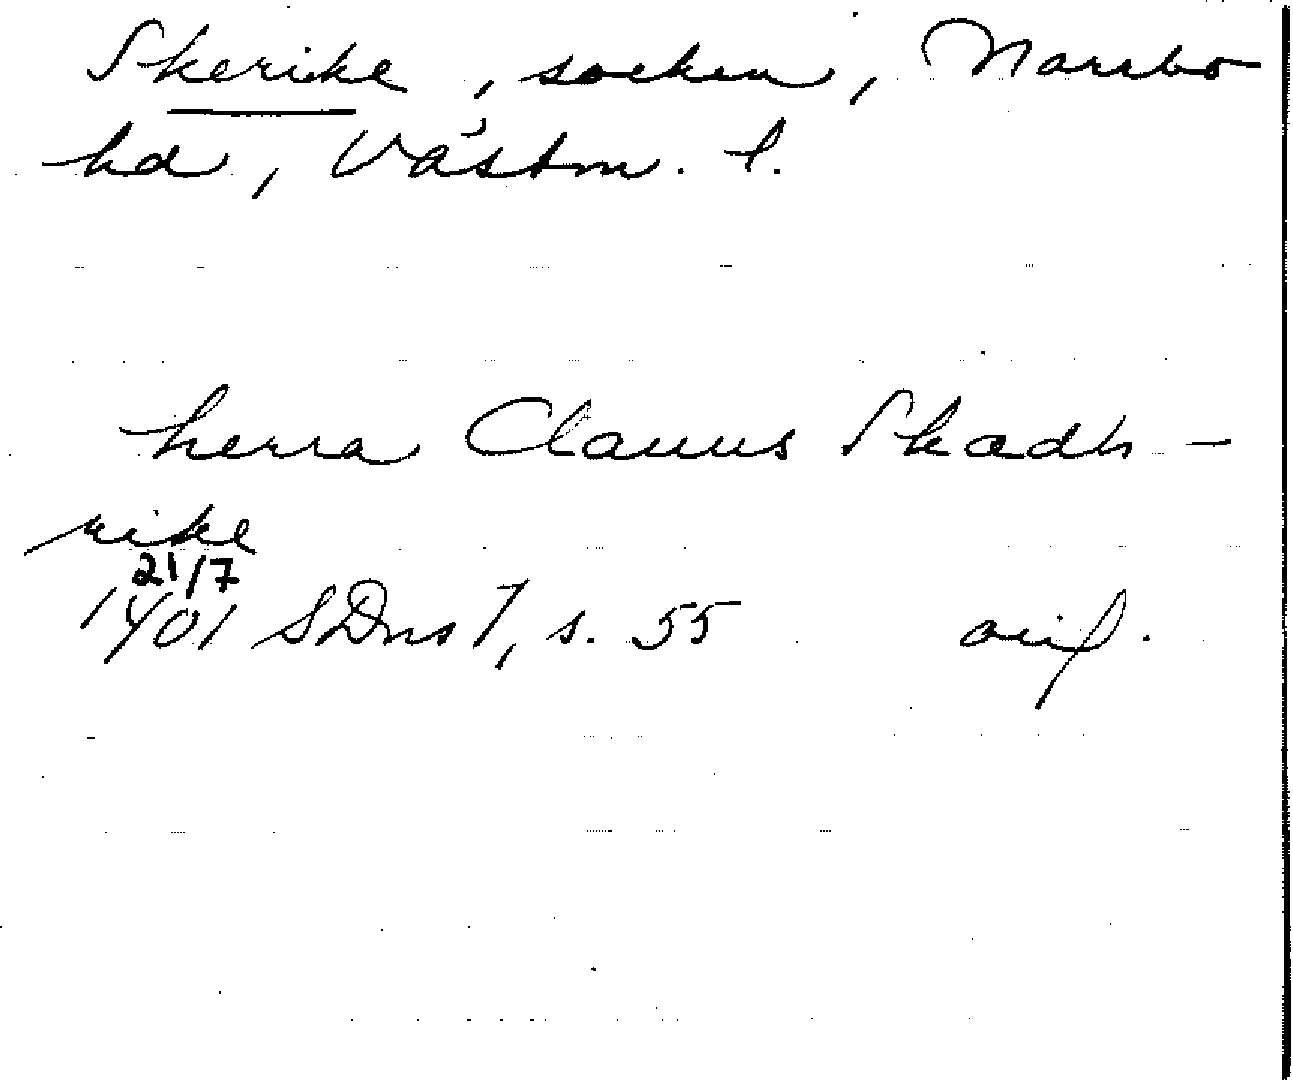 Skerike, socken, Norrbo
hd, Västm. l.
herra Clauus Skadh-
rike
21/7
1401 SDns 1, s. 55 avif.